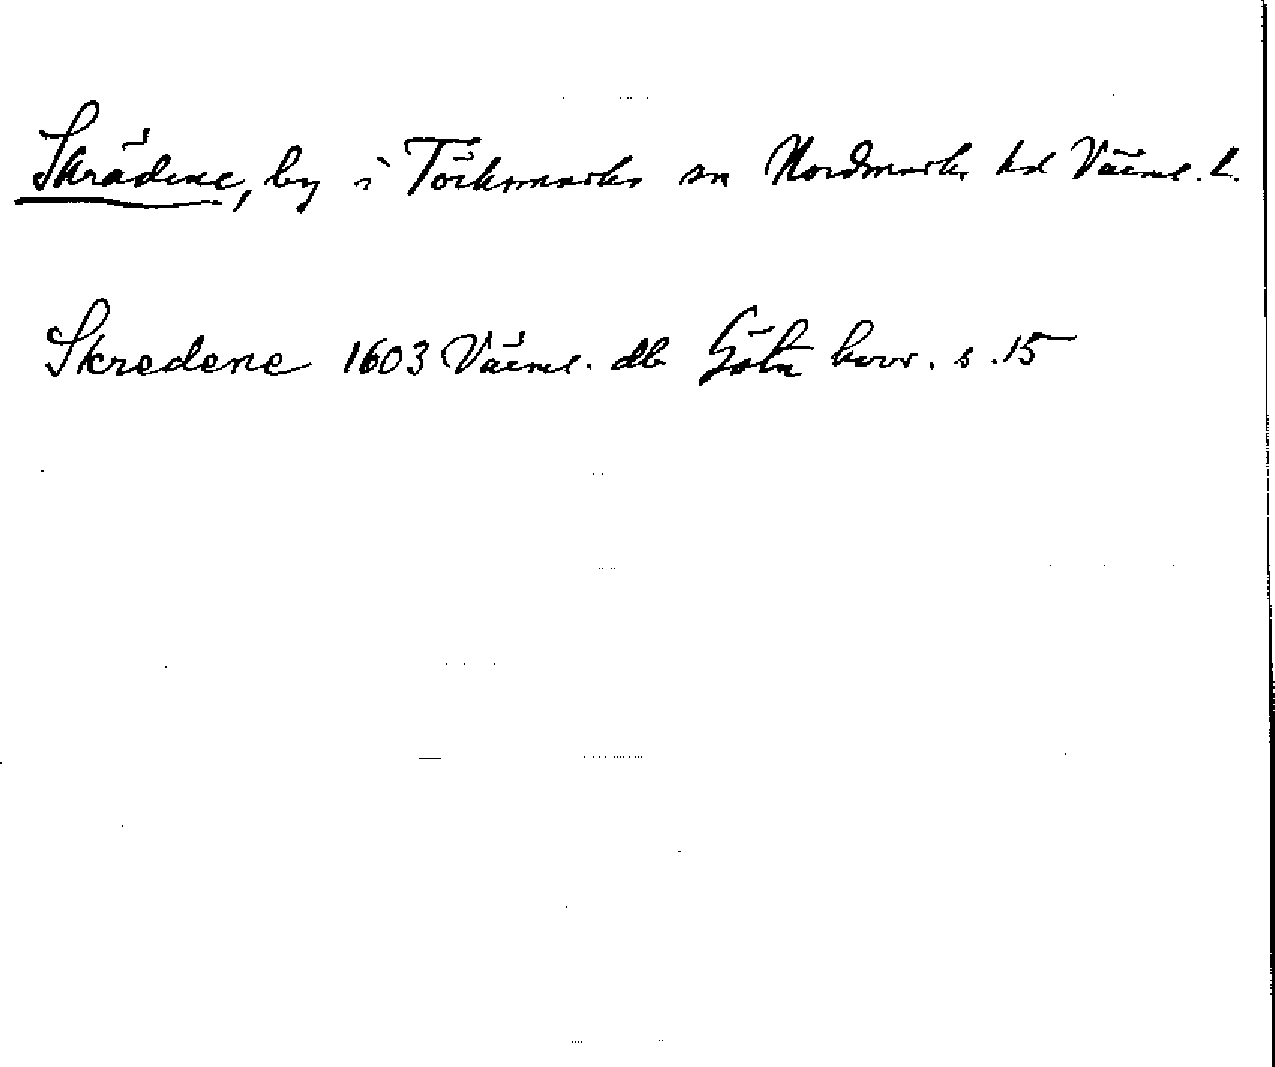 Skrädene, by i Töcksmarks sn Nordmarks hd Värml. l.
Skredene 1603 Värml. db Göta hovr. s. 15